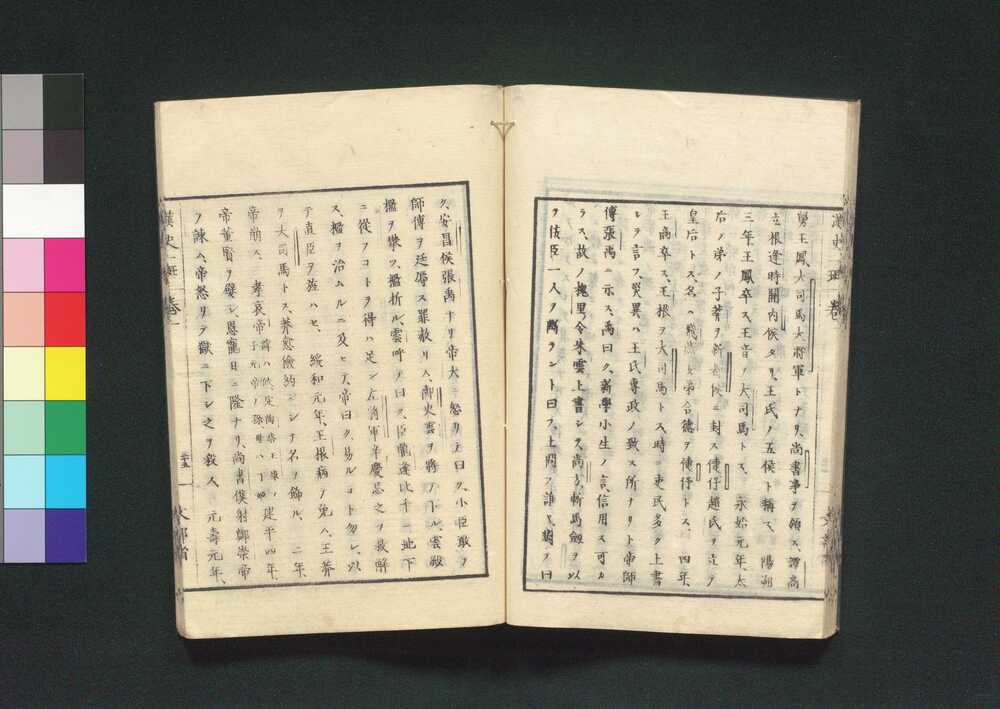 舅王鳳、大司馬大將軍トナリ、尚書事ヲ領ス、譚商
立根逢時關内侯タリ、王氏ノ五侯ト稱ス、陽朔
三年、王鳳卒ス、王音ヲ大司馬トス、永始元年、太
后ノ弟ノ子莽ヲ新都侯ニ封ス、倢伃趙氏ヲ立テ
皇后トス、名ハ飛燕、女弟合德ヲ倢伃トス、四年、
王商卒ス、王根ヲ大司馬トス、時ニ吏民多ク上書
シテ言フ、災異ハ王氏專政ノ致ス所ナリト、帝師
傅張禹ニ示ス、禹曰ク、新學小生ノ言、信用ス可カ
ラス、故ノ槐里ノ令朱雲上書シテ、尚方斬馬劒ヲ以
ヲ佞臣一人ヲ斷ラント曰フ、上問フ誰ソ、對ヲ曰
ク、安昌侯張禹ナリ、帝大ニ怒リテ曰ク、小臣敢ヲ
師傅ヲ廷辱ス、罪赦サス、御史雲ヲ將テ下ル、雲殿
檻ヲ攀ツ、檻折ル、雲呼ヲ曰ク、臣龍逢比干ニ地下
ニ從フコトヲ得ハ足ン、左將軍辛慶忌之ヲ救解
ス、檻ヲ治ムルニ及ヒテ、帝曰ク、易ルコト勿レ、以
テ直臣ヲ旌ハセ、綏和元年、王根病ヲ免ス、王莽
ヲ大司馬トス、莽愈儉約シテ名ヲ飾ル、二年、
帝崩ス、孝哀帝 建平四年、
帝董賢ヲ嬖シ、恩寵日ニ隆ナリ、尚書僕射鄭崇帝
ヲ諫ム、帝怒リテ獄ニ下シ之ヲ殺ス、元壽元年、
漢史一班 卷一
文部省